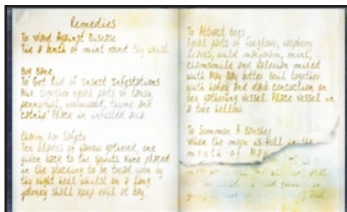 Remedies
To Ward Against Disease
Tie a bunch of mint round the wrist
Bug Bane
To Get Rid of Insect Infestations
Mix together equal parts of tansy,
pennyroyal, wormwood, thyme and
catnip. Place in infested area.
Charm for Sprits
Ten blades of yarrow gathered, one
given back to the spirits nine placed
in the stocking to be tread upon by
the right heel whilst on a long
journey shall keep evil at bay
To Attract Bees
Equal parts of foxglove, raspberry
leaves, wild marjoram, mint,
chamomile and valerian mixed
with May day butter boil together
with honey and dab concoction on
bee gathering vessel. Place vessel in
a tree hollow.
To Summon A
When the moon is full in the
month of